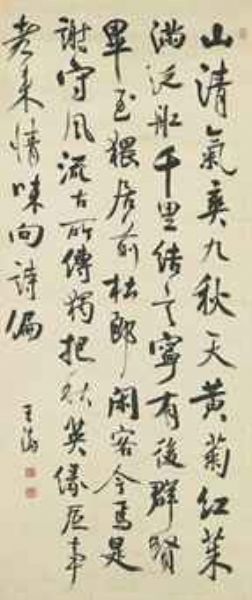 山清氣爽九秋天黃菊紅茱
滿泛舡千里結言寧有後群賢
畢至猥居前杜郎閑客今焉是
謝守風流古所傳獨把秋英緣底事
老來情味向詩偏
王澍